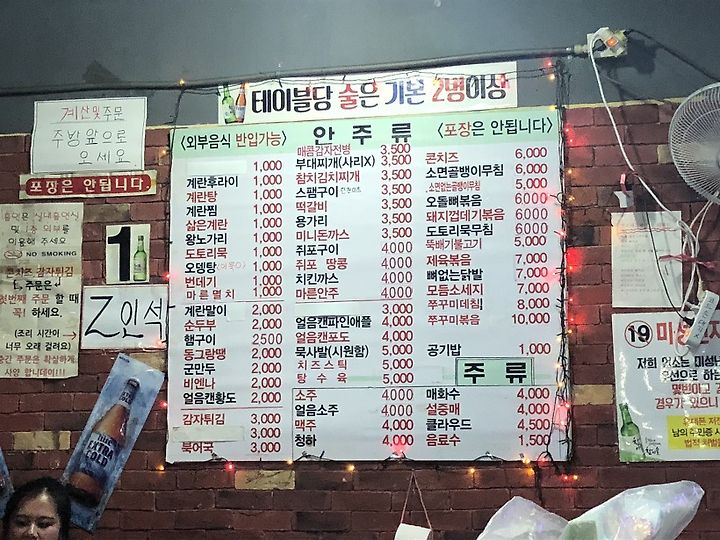 테이블당 술은 기본 2병이상
계산및주문
주방앞으로
오세요
포장은 안됩니다.
1
Z인석
<외부음식 반입가능>
안 주 류
<포장은 안됩니다>
1,000
계란후라이 1,000
계란탕 1,000
계란찜 1,000
삶은계란 1,000
왕노가리 1,000
도토리묵 1,000
오뎅탕 1,000
번데기 1,000
마른멸치 1,000
계란말이 2,000
순두부 2,000
햄구이 2500
동그랑땡 2,000
군만두 2,000
비엔나 2,000
얼음캔황도 2,000
감자튀김 3,000
3,000
북어국 3,000
매콤감자전병 3,500
부대찌개(사리X) 3,500
참치김치찌개 3,500
스팸구이 3,500
떡갈비 3,500
용가리 3,500
미니돈까스 3,500
쥐포구이 4000
쥐포 땅콩 4,000
치킨까스 4,000
마른안주 4,000
3,000
얼음캔파인애플 4,000
얼음캔포도 4,000
묵사발(시원함) 5,000
치즈스틱 5,000
탕수육 5,000
소주 4000
얼음소주 4000
맥주 4,000
청하 4,000
콘치즈 6,000
소면골뱅이무침 6,000
소면없는골뱅이무침 5,000
오돌뼈볶음 6000
돼지껍데기볶음 6000
도토리묵무침 6,000
뚝배기불고기 5,000
제육볶음 7,000
뼈없는닭발 7,000
모듬소세지 7,000
쭈꾸미데침 8,000
쭈꾸미볶음 10,000
공기밥 1,000
주 류
매화수 4,000
설중매 4,000
클라우드 4,500
음료수 1,500
이용해 주세요
NO SMOKING
감자튀김
첫번째 주문 할때
꼭! 하세요.
(조리 시간이
너무 오래 걸려요)
중간 주문은 확실하게
사양 합니데이!!!
EXTRA
COLD
19 미성년자
저희 업소는 미성